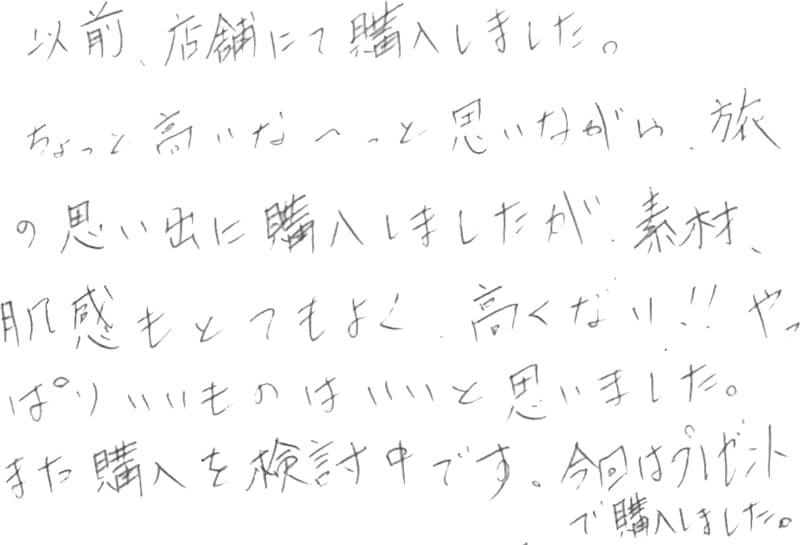 以前、店舗にて購入しました。
ちょっと高いな〜っと思いながら、旅
の思い出に購入しましたが、素材、
肌感もとてもよく、高くない!!やっ
ぱりいいものはいいと思いました。
また購入を検討中です。今回はプレゼント
で購入しました。